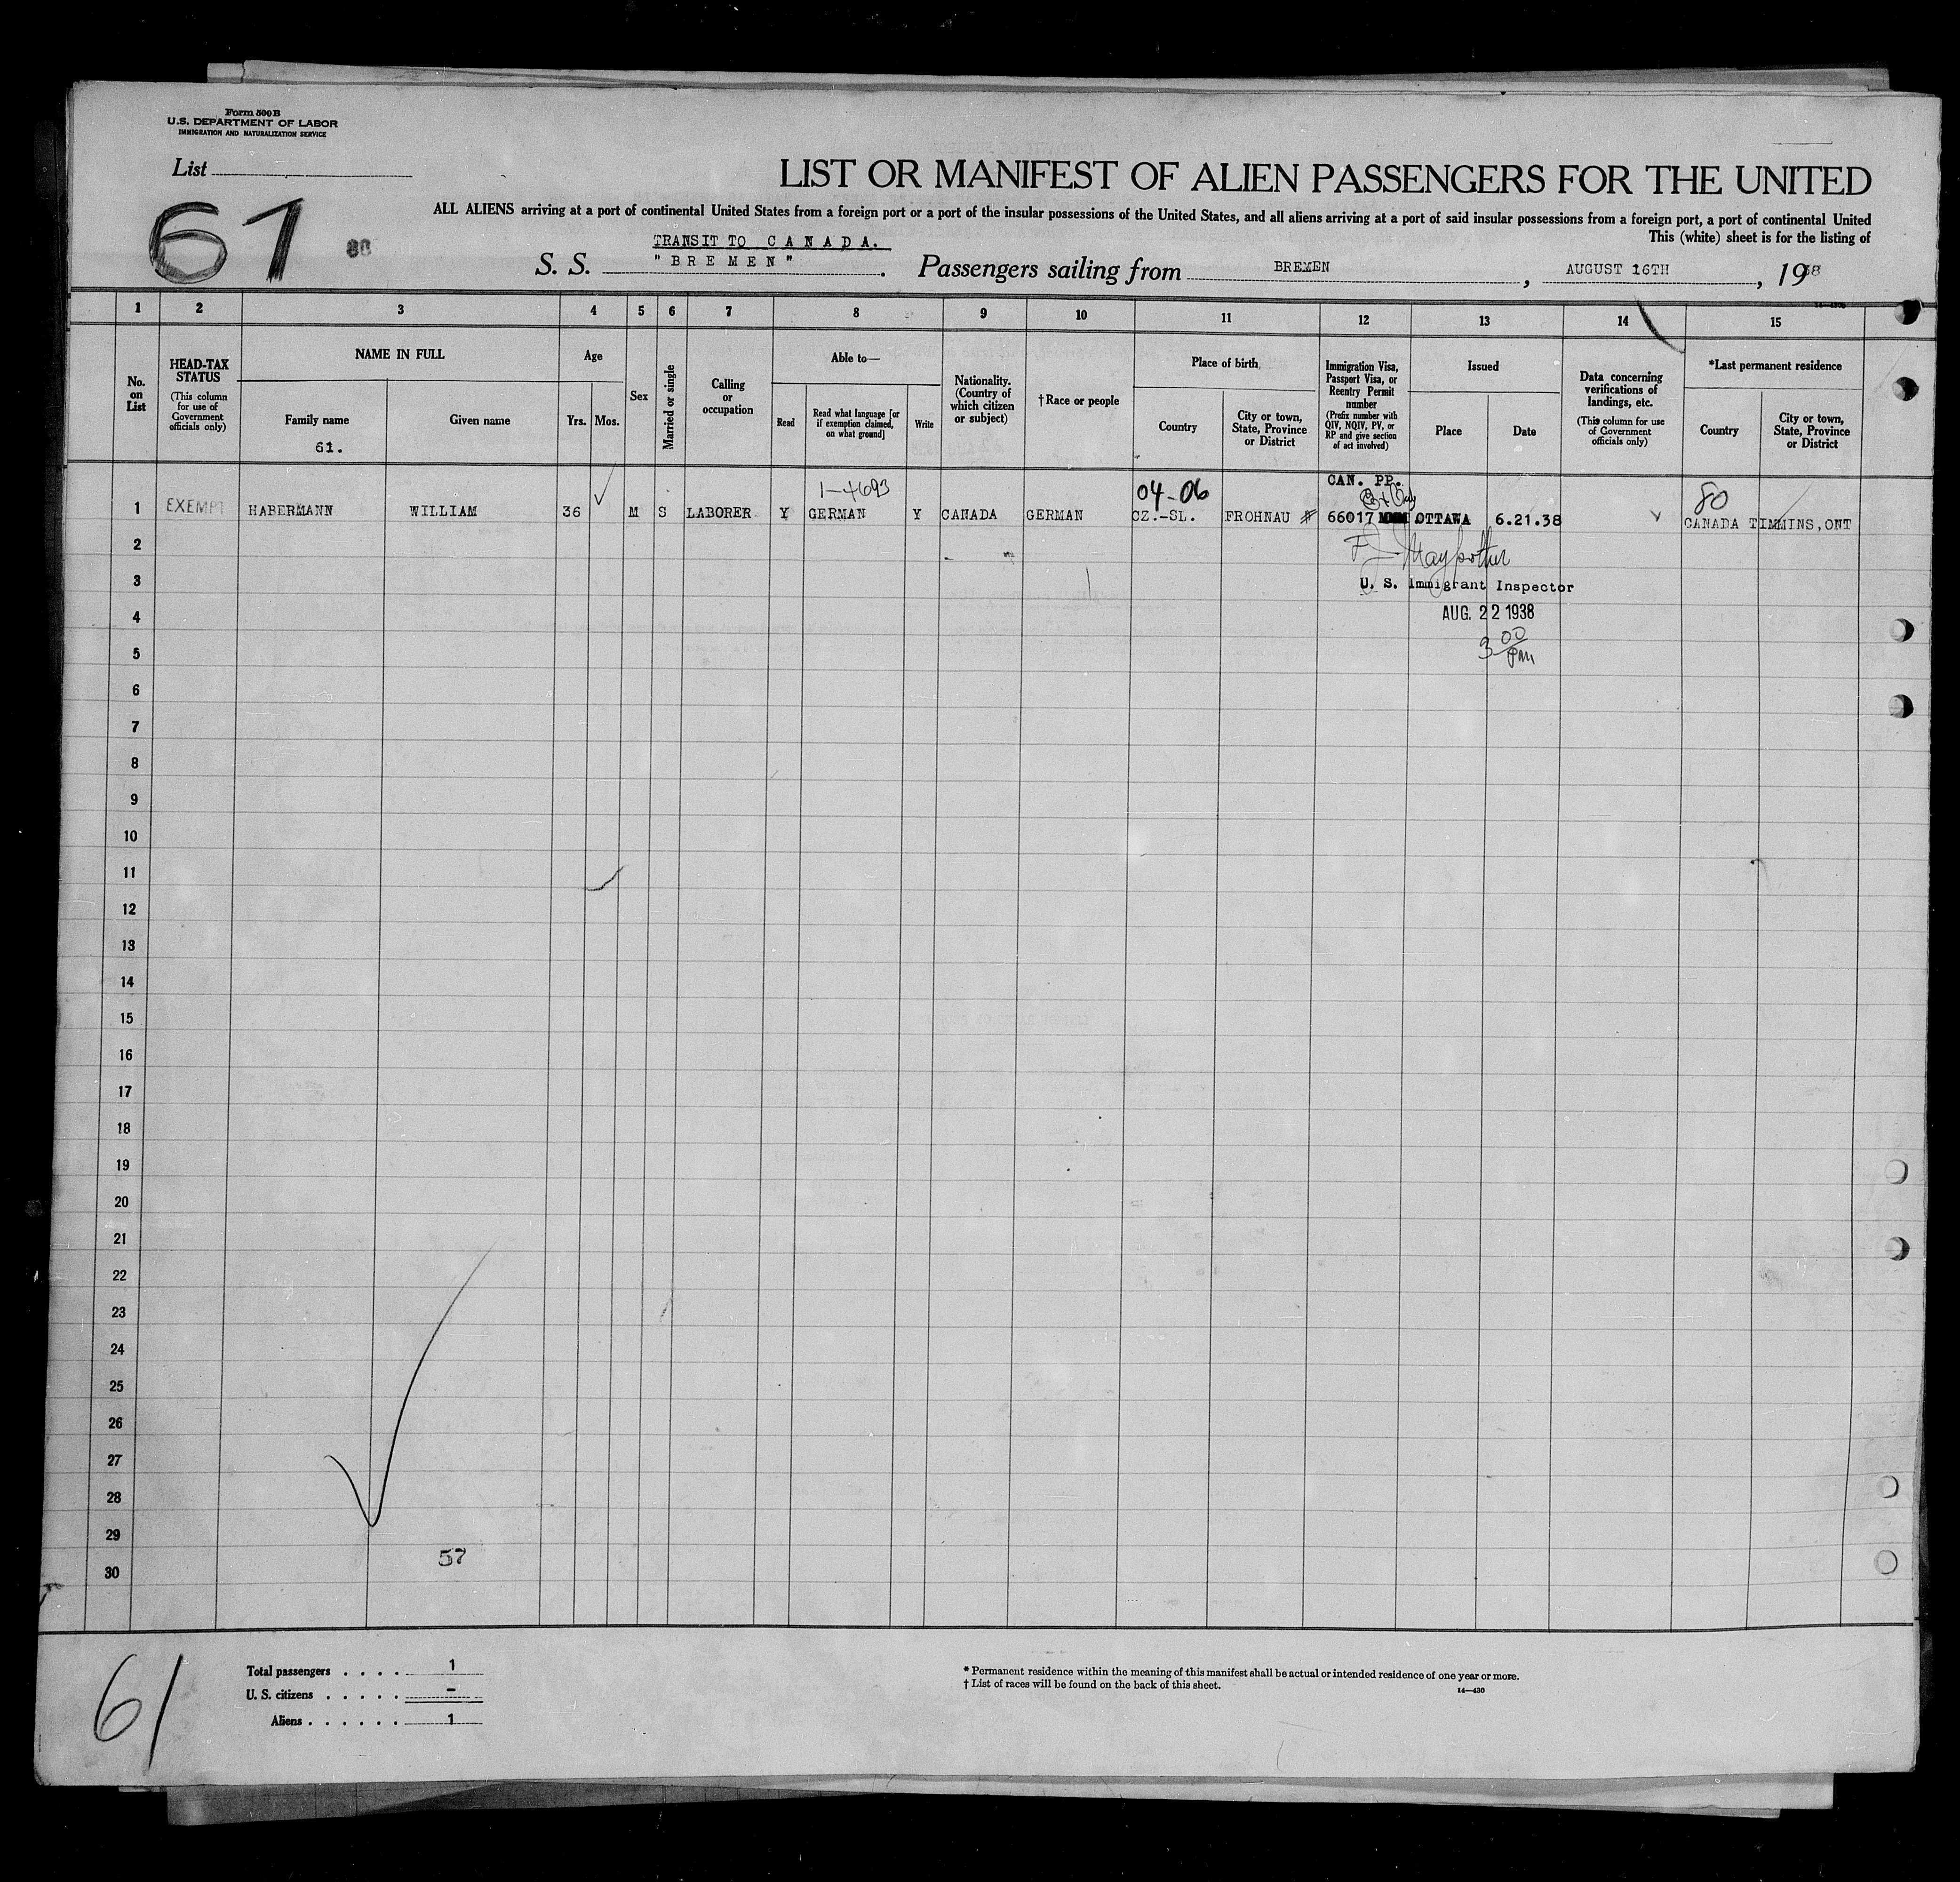 Form 500 B
U.S. DEPARTMENT OF LABOR
IMMIGRATION AND NATURALIZATION SERVICE
List
LIST OR MANIFEST OF ALIEN PASSENGERS FOR THE UNITED
61
80
ALL ALIENS arriving at a port of continental United States from a foreign port or a port of the insular possessions of the United States, and all aliens arriving at a port of said insular possessions from a foreign port, a port of continental United
This (white) sheet is for the listing of
TRANSIT TO CANADA.
S. S. "BREMEN". Passengers sailing from BREMEN, AUGUST 16TH, 1938
1 2 3 4 5 6 7 8 9 10 11 12 13 14 15
No. on List
HEAD-TAX STATUS
(This column for use of Government officials only)
NAME IN FULL
Family name
61.
Given name
Age
Yrs. Mos.
Sex
Married or single
Calling or occupation
Able to—
Read
Read what language [or if exemption claimed, on what ground]
Write
Nationality. (Country of which citizen or subject)
† Race or people
Place of birth
Country
City or town, State, Province or District
Immigration Visa, Passport Visa, or Reentry Permit number
(Prefix number with QIV, NQIV, PV, or RP and give section of act involved)
Issued
Place
Date
Data concerning verifications of landings, etc.
(This column for use of Government officials only)
*Last permanent residence
Country
City or town, State, Province or District
1-4693
04-06
CAN. PP.
80
1 EXEMPT HABERMANN WILLIAM 36 M S LABORER Y GERMAN Y CANADA GERMAN CZ.-SL. FROHNAU # 66017 OTTAWA 6.21.38 CANADA TIMMINS, ONT
2
3
U. S. Immigrant Inspector
4
AUG. 22 1938
5
3 00 pm
6
7
8
9
10
11
12
13
14
15
16
17
18
19
20
21
22
23
24
25
26
27
28
29
57
30
61
Total passengers . . . . 1
U. S. citizens . . . . . –
Aliens . . . . . . 1
* Permanent residence within the meaning of this manifest shall be actual or intended residence of one year or more.
† List of races will be found on the back of this sheet.
14—430